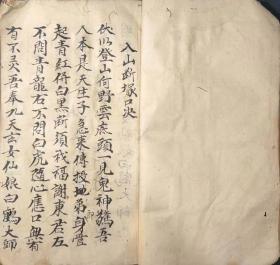 入山斷塚口訣
伏以登山何野雲底頭一見鬼神驚吾
人本是天生子急來傳授地弟身營
起青紅併白黑斷須我福謝東君左
不問青龍右不問白虎隨心應口無有
有不灵吾奉九天玄女仙娘白鶴大師